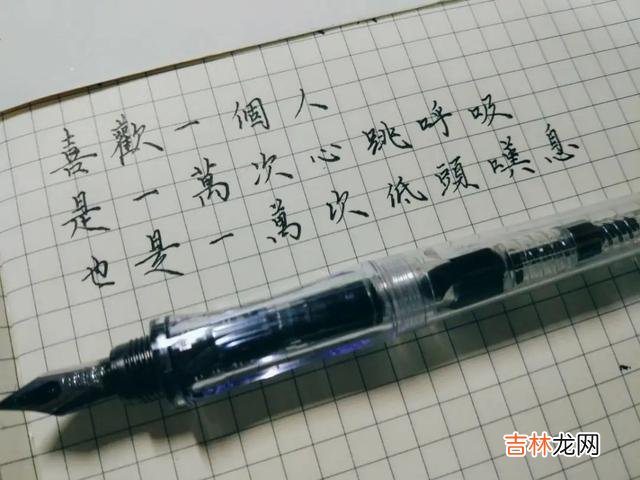 喜歡一個人
是一萬次心跳呼吸
也是一萬次低頭嘆息
吉林龙网